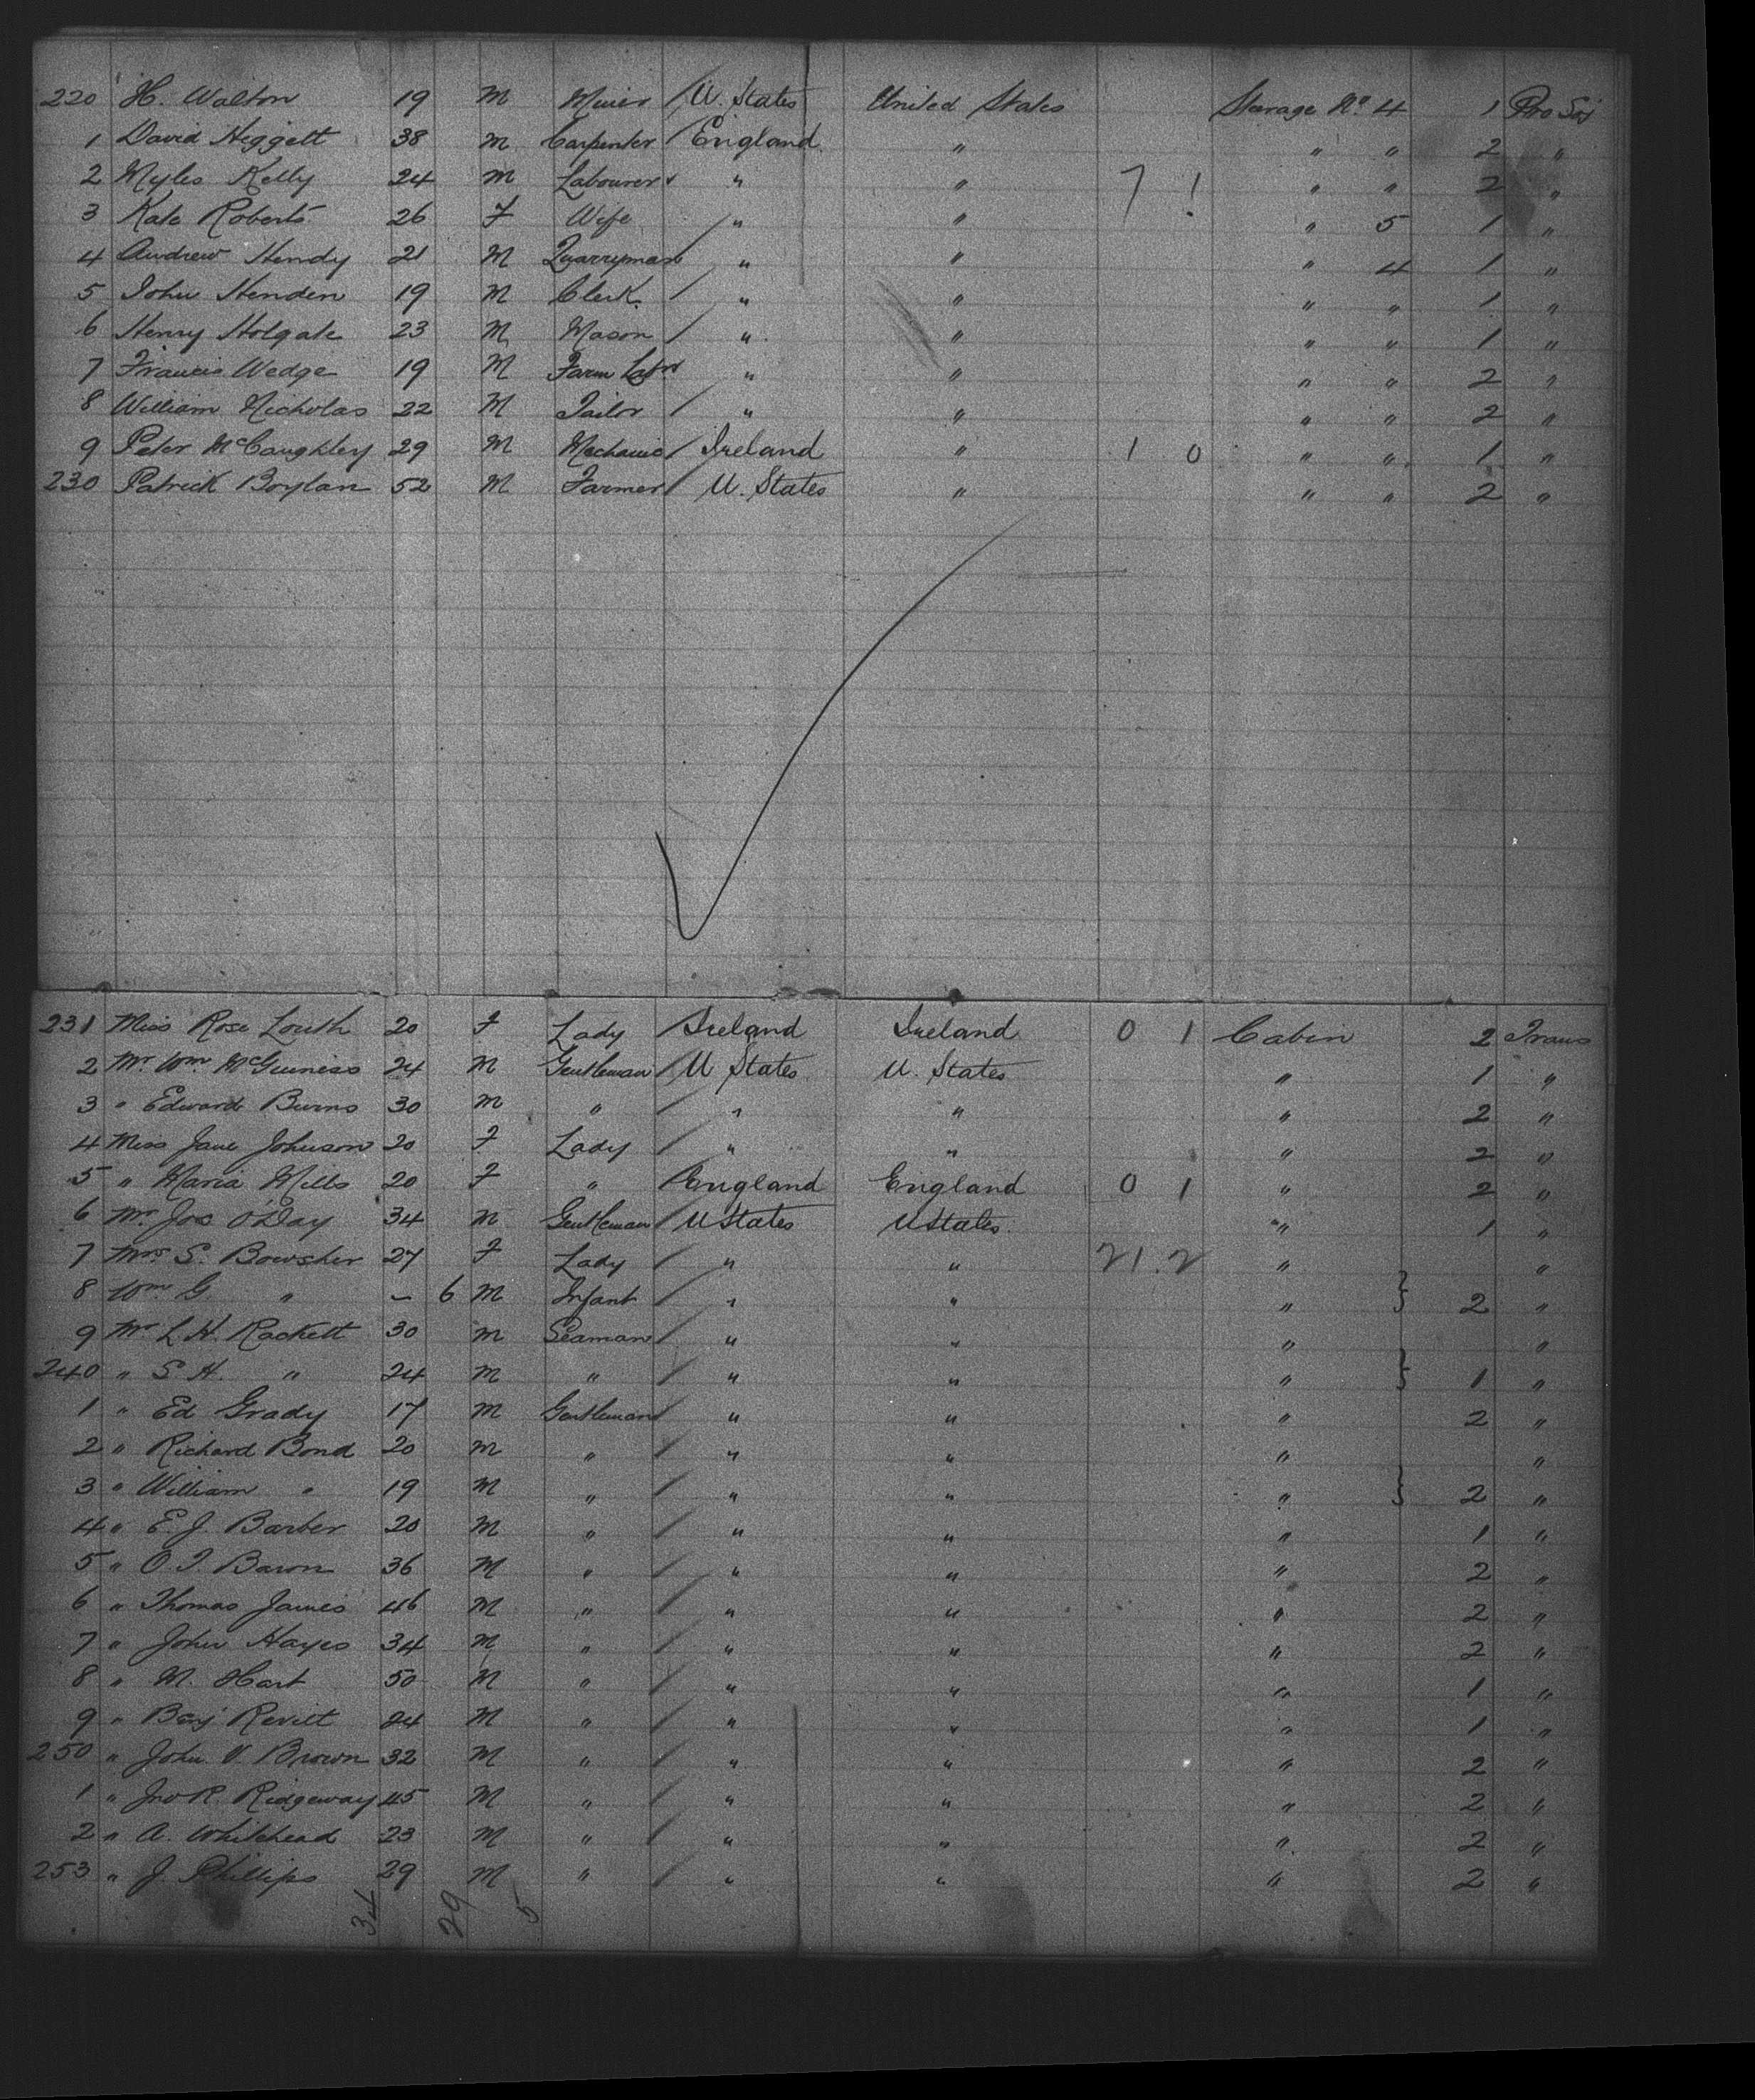 220 H. Walton 19 M Miner / U. States United States Steerage No. 4 1 Pro Soj
1 David Higgett 38 M Carpenter / England " " " 2 "
2 Myles Kelly 24 M Labourer " " 7 1 " " 2 "
3 Kate Roberts 26 F Wife / " " " 5 1 "
4 Andrew Hendy 21 M Quarryman " " " 4 1 "
5 John Henden 19 M Clerk / " " " " 1 "
6 Henry Holgate 23 M Mason / " " " " 1 "
7 Francis Wedge 19 M Farm Labr " " " " 2 "
8 William Nicholas 22 M Tailor / " " " " 2 "
9 Peter McCaughley 29 M Mechanic / Ireland " 1 0 " " 1 "
230 Patrick Boylan 52 M Farmer / U. States " " " 2 "
231 Miss Rose Louth 20 F Lady / Ireland Ireland 0 1 Cabin 2 Trans
2 Mr. Wm. McGuiness 24 M Gentleman / U States U. States " 1 "
3 " Edward Burns 30 M " / " " " 2 "
4 Miss Jane Johnson 20 F Lady / " " " 2 "
5 " Maria Mills 20 F " / England England 0 1 " 2 "
6 Mr. Jos O'Day 34 M Gentleman / U States U States " 1 "
7 Mrs. S. Bowsher 27 F Lady / " " 21. 2 " "
8 Wm. G. " – 6 M Infant / " " " } 2 "
9 Mr L H. Rackett 30 M Seaman / " " " "
240 " S H. " 24 M " / " " " } 1 "
1 " Ed Grady 17 M Gentleman / " " " 2 "
2 " Richard Bond 20 M " / " " " "
3 " William " 19 M " / " " " } 2 "
4 " E. J. Barber 20 M " / " " " 1 "
5 " O. T. Baron 36 M " / " " " 2 "
6 " Thomas James 46 M " / " " " 2 "
7 " John Hayes 34 M " / " " " 2 "
8 " M. Hart 50 M " / " " " 1 "
9 " Benj Revilt 24 M " / " " " 1 "
250 " John V. Brown 32 M " / " " " 2 "
1 " Jno R. Ridgeway 45 M " / " " " 2 "
2 " A. Whitehead 23 M " / " " " 2 "
253 " J. Phillips 29 M " / " " " 2 "
34 29 5